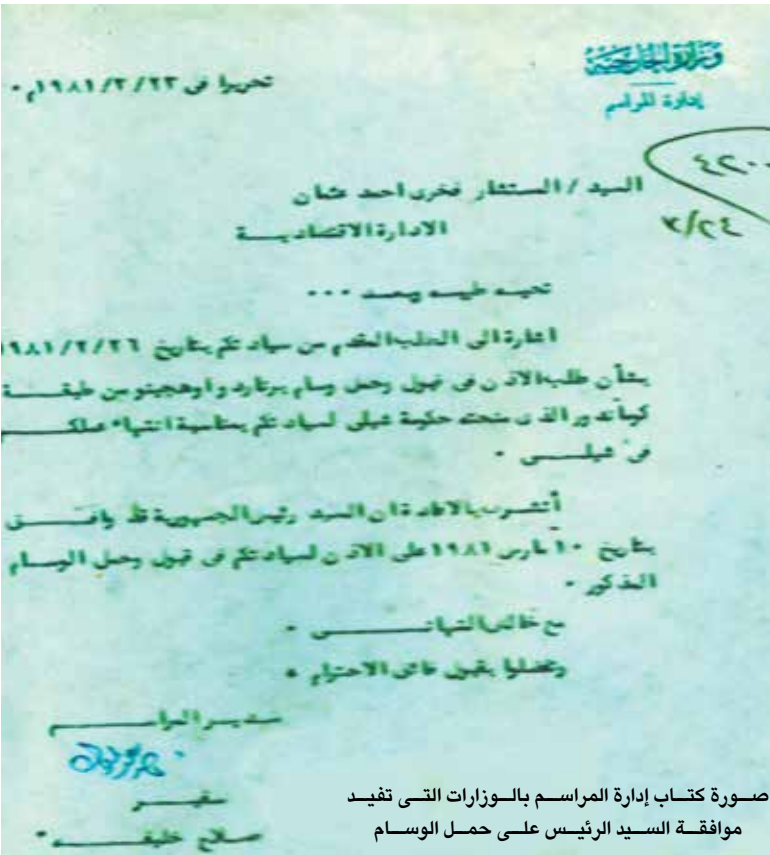 وزارة الخارجية
إدارة المراسم
تحريرا فى ٢٣/٣/١٩٨١م ٠
٢٤/٣
السيد / المستشار فخرى احمد عثمان
الادارة الاقتصاديـــة
تحيـه طيبـه وبعـد ٠٠٠
اشارة الى الطلب المقدم من سيادتكم بتاريخ ٢٦/٢/١٩٨١
بشأن طلب الاذن فى قبول وحمل وسام برناردو اوهجينز من طبقـــة
كوماندور الذى منحته حكومة شيلى لسيادتكم بمناسبة انتهاء عملكـــم
فى شيلـــى ٠
أتشرف بالافادة ان السيد رئيس الجمهورية قد وافـــق
بتاريخ ١٠ مارس ١٩٨١ على الاذن لسيادتكم فى قبول وحمل الوسـام
المذكور ٠
مع خالص التهانـــى ٠
وتفضلوا بقبول فائق الاحترام ٠
مديـر المراســـم
سفيـــر
صـلاح خليفـــه ٠
صــورة كتــاب إدارة المراســم بالــوزارات التــى تفيــد
موافقــة الســيد الرئيــس علــى حمــل الوســام